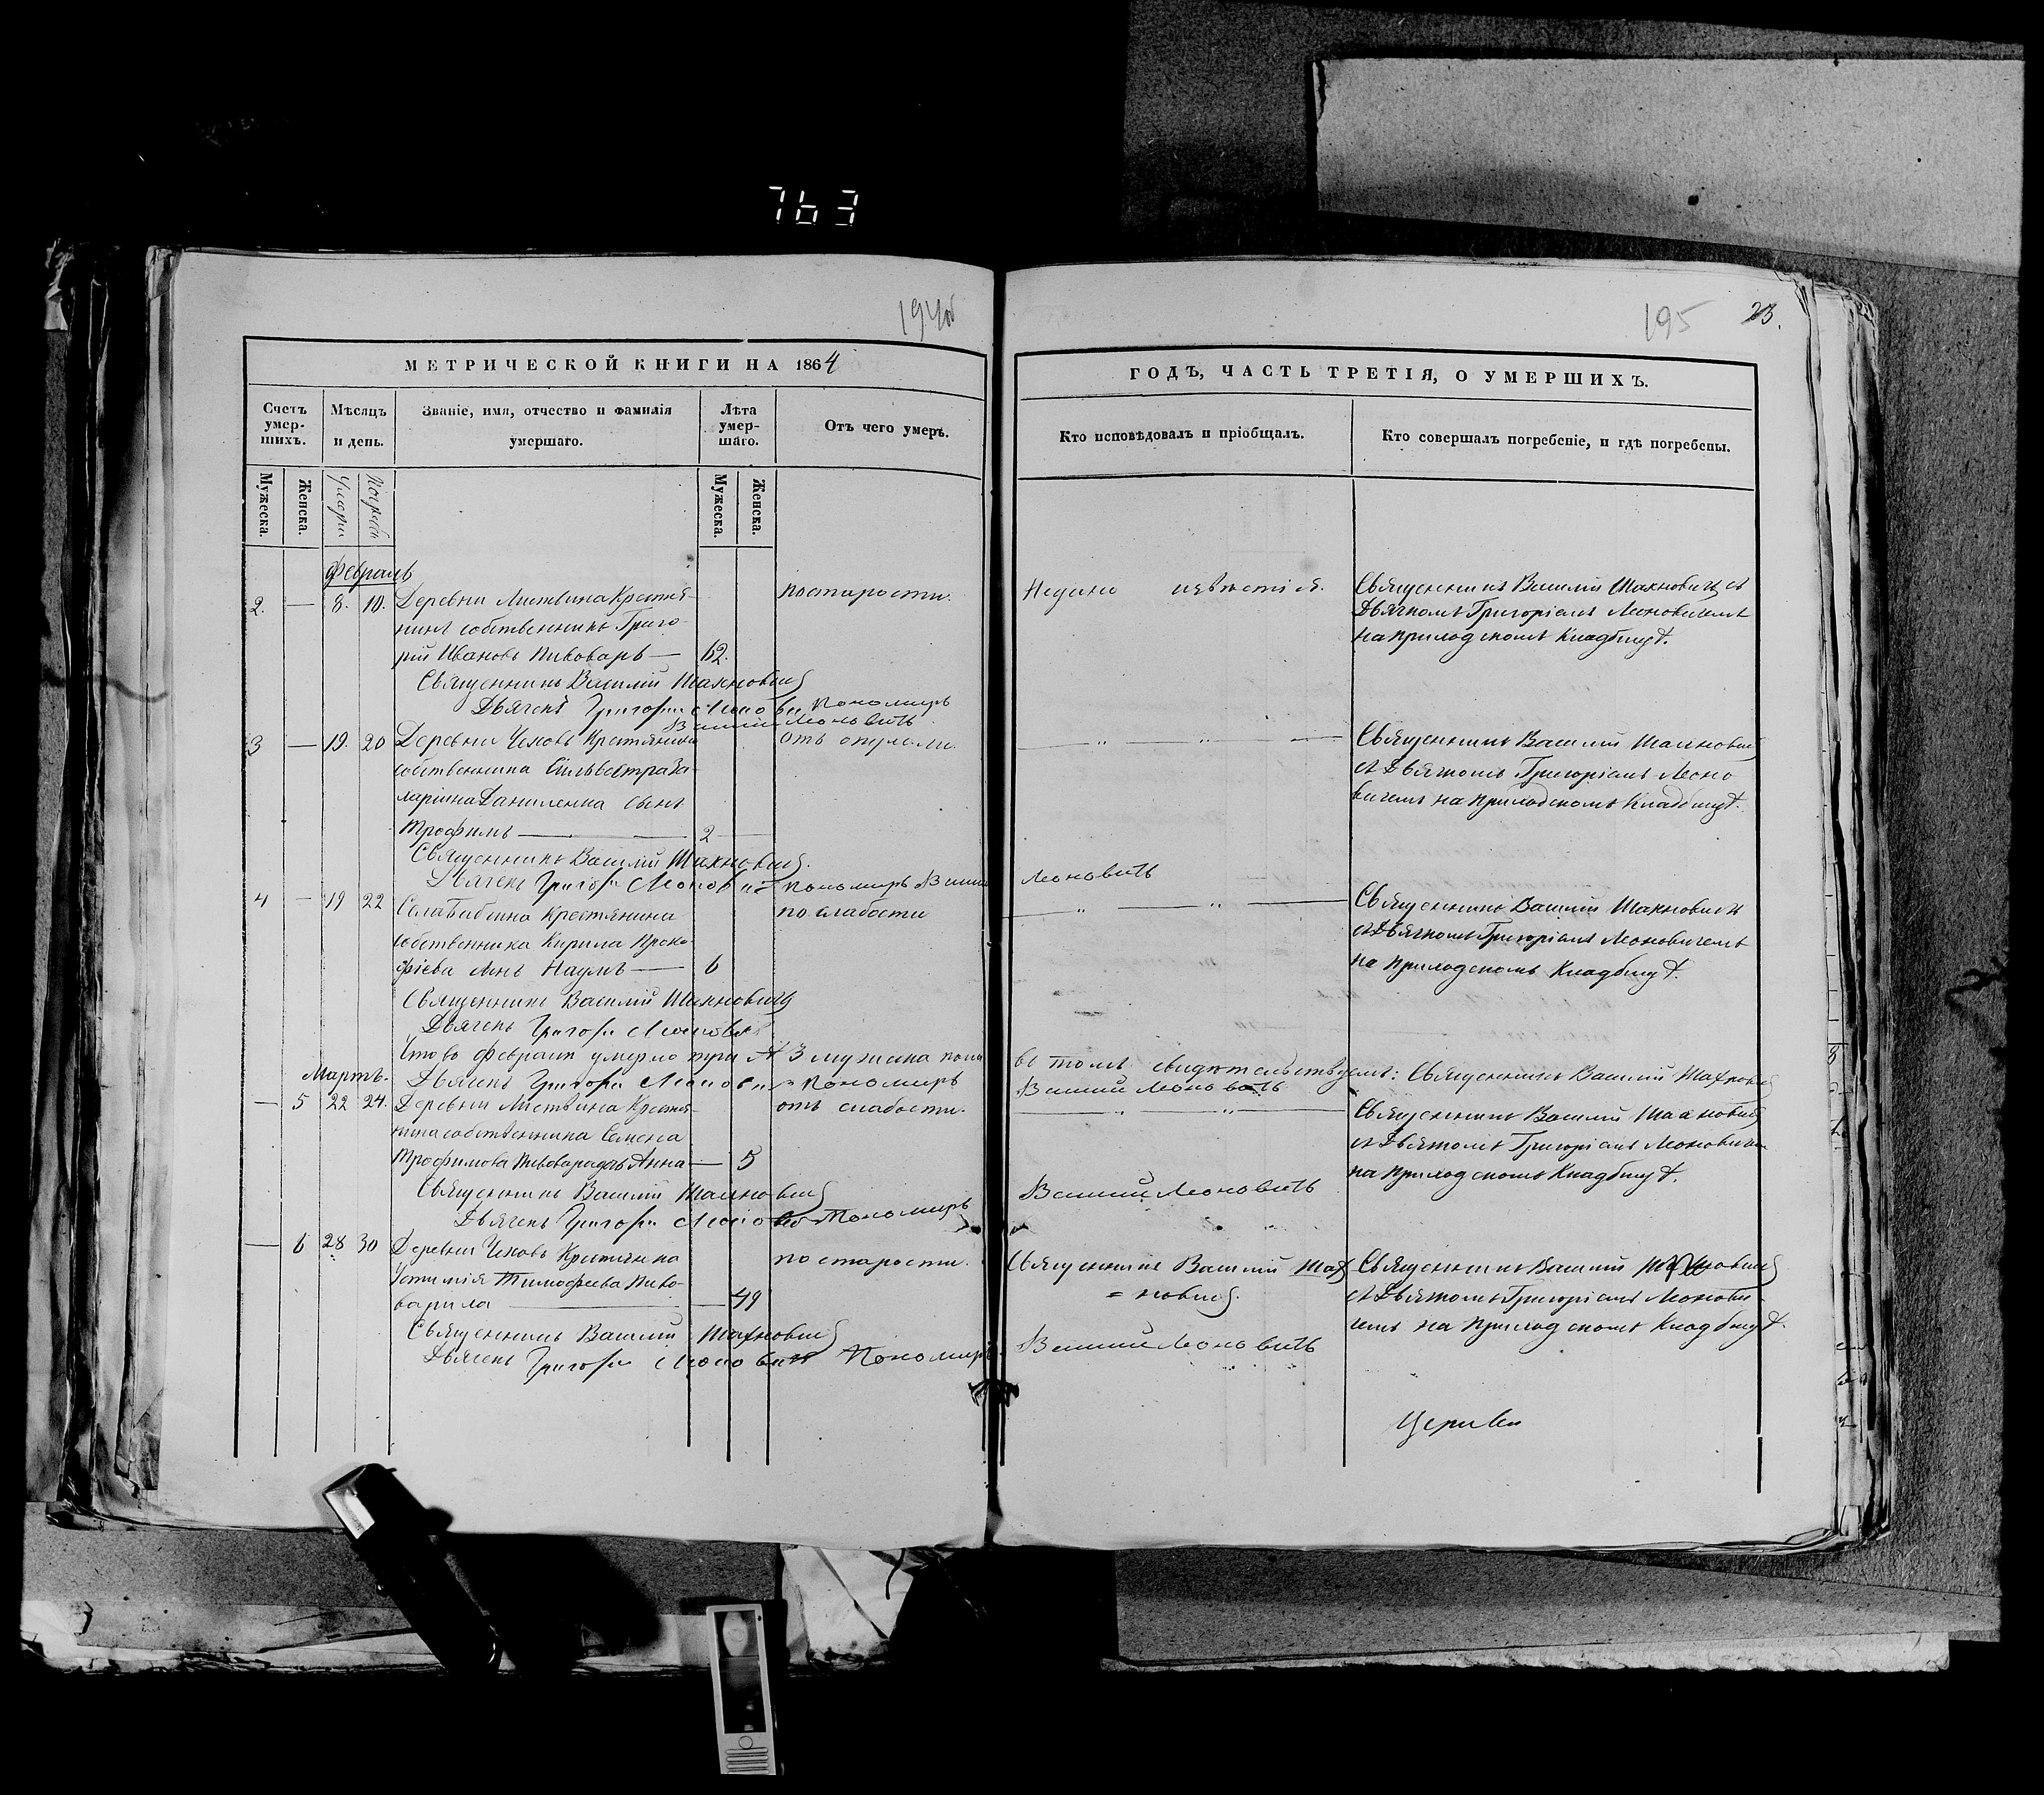 763
194об
МЕТРИЧЕСКОЙ КНИГИ НА 1864
Счетъ умер-шихъ.
Мѣсяцъ и день.
Званіе, имя, отчество и фамилія умершаго.
Лѣта умер-шаго.
Отъ чего умеръ.
Мужеска.
Женска.
Мужеска.
Женска.
Февраль
2. — 8. 10. Деревни Листвина Крестья-
нинъ собственникъ Григо-
рій Ивановъ Пивоваръ — 62.
по старости.
Священникъ Василій Шахновичъ
Дьячекъ Григорий Леонович Пономарь
Василий Леоновичъ
3 — 19. 20 Деревни Чеховъ Крестьянина
собственника Сильвестра За-
харіина Даниленка сынъ
Трофимъ — 2
отъ опухоли.
Священникъ Василій Шахновичъ.
Дьячекъ Григорий Леонович Пономарь Василий
4 — 19 22 Села Бабина Крестьянина
собственника Кирила Проко-
фіева сынъ Наумъ — 6
по слабости
Священникъ Василій Шахновичъ
Дьячекъ Григорий Леонович
Что во Февралѣ умерло три 3 мужска пола
Мартъ.
Дьячекъ Григорий Леонович Пономарь
— 5 22 24. Деревни Листвина Крестья-
нина собственника Семена
Трофимова Пивовара дочь Анна — 5
отъ слабости.
Священникъ Василій Шахновичъ
Дьячекъ Григорий Леонович Пономарь
— 6 28 30 Деревни Чеховъ Крестьянка
Устимія Тимофеева Пиво-
вариха — 49
по старости.
Священникъ Василій Шахновичъ
Дьячекъ Григорий Леонович Пономарь
195
23.
ГОДЪ, ЧАСТЬ ТРЕТІЯ, О УМЕРШИХЪ.
Кто исповѣдовалъ и пріобщалъ.
Кто совершалъ погребеніе, и гдѣ погребены.
Недано извѣстія.
Священникъ Василій Шахновичъ съ
Дьячкомъ Григоріемъ Леоновичемъ
на приходскомъ Кладбищѣ.
— „ — „ —
Священникъ Василій Шахновичъ
съ Дьячкомъ Григоріемъ Леоно
вичемъ на приходскомъ Кладбищѣ.
Леоновичъ
— „ — „ —
Священникъ Василій Шахновичъ
съ Дьячкомъ Григоріемъ Леоновичемъ
на приходскомъ Кладбищѣ.
въ томъ свидѣтельствуемъ: Священникъ Василій Шахнович
Василий Леоновичъ
— „ — „ —
Священникъ Василій Шахновичъ
съ Дьячкомъ Григоріемъ Леоновичем
на приходскомъ Кладбищѣ.
Василий Леоновичъ
Священникъ Василій Шах
= новичъ.
Священникъ Василій Шахновичъ
съ Дьячкомъ Григоріемъ Леонови-
чемъ на приходскомъ Кладбищѣ.
Василий Леоновичъ
Церкви